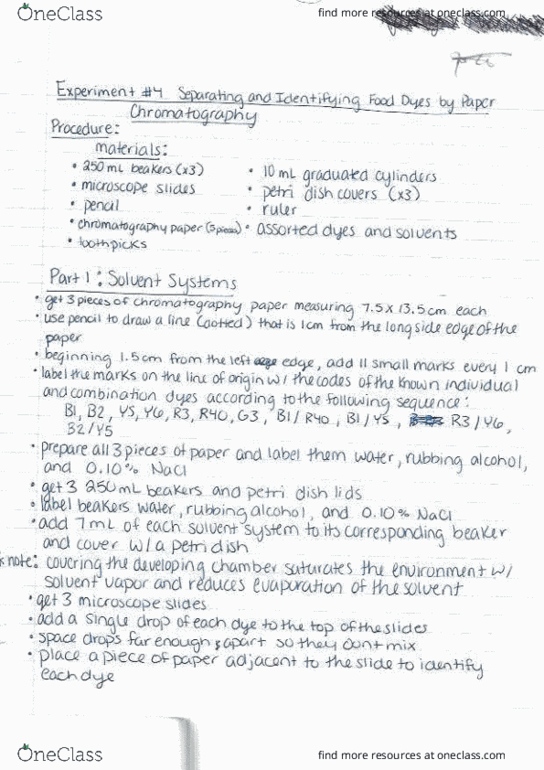 OneClass
find more resources at oneclass.com
Experiment #4 Separating and Identifying Food Dyes by Paper
Chromatography
Procedure:
materials:
• 250 mL beakers (x3)
• microscope slides
• pencil
• chromatography paper (3 pieces)
• toothpicks
• 10 mL graduated cylinders
• petri dish covers (x3)
• ruler
• assorted dyes and solvents
Part 1: Solvent Systems
• get 3 pieces of chromatography paper measuring 7.5 x 13.5 cm each
• use pencil to draw a line (dotted) that is 1cm from the long side edge of the
paper
• beginning 1.5 cm from the left edge, add 11 small marks every 1 cm
• label the marks on the line of origin w/ the codes of the known individual
and combination dyes according to the following sequence:
B1, B2, Y5, Y6, R3, R40, G3, B1/R40, B1/Y5, R3/Y6,
B2/Y5
• prepare all 3 pieces of paper and label them water, rubbing alcohol,
and 0.10% NaCl
• get 3 250 mL beakers and petri dish lids
• label beakers water, rubbing alcohol, and 0.10% NaCl
• add 7 mL of each solvent system to its corresponding beaker
and cover w/ a petri dish
note: covering the developing chamber saturates the environment w/
solvent vapor and reduces evaporation of the solvent
• get 3 microscope slides
• add a single drop of each dye to the top of the slides
• space drops far enough apart so they dont mix
• place a piece of paper adjacent to the slide to identify
each dye
OneClass
find more resources at oneclass.com